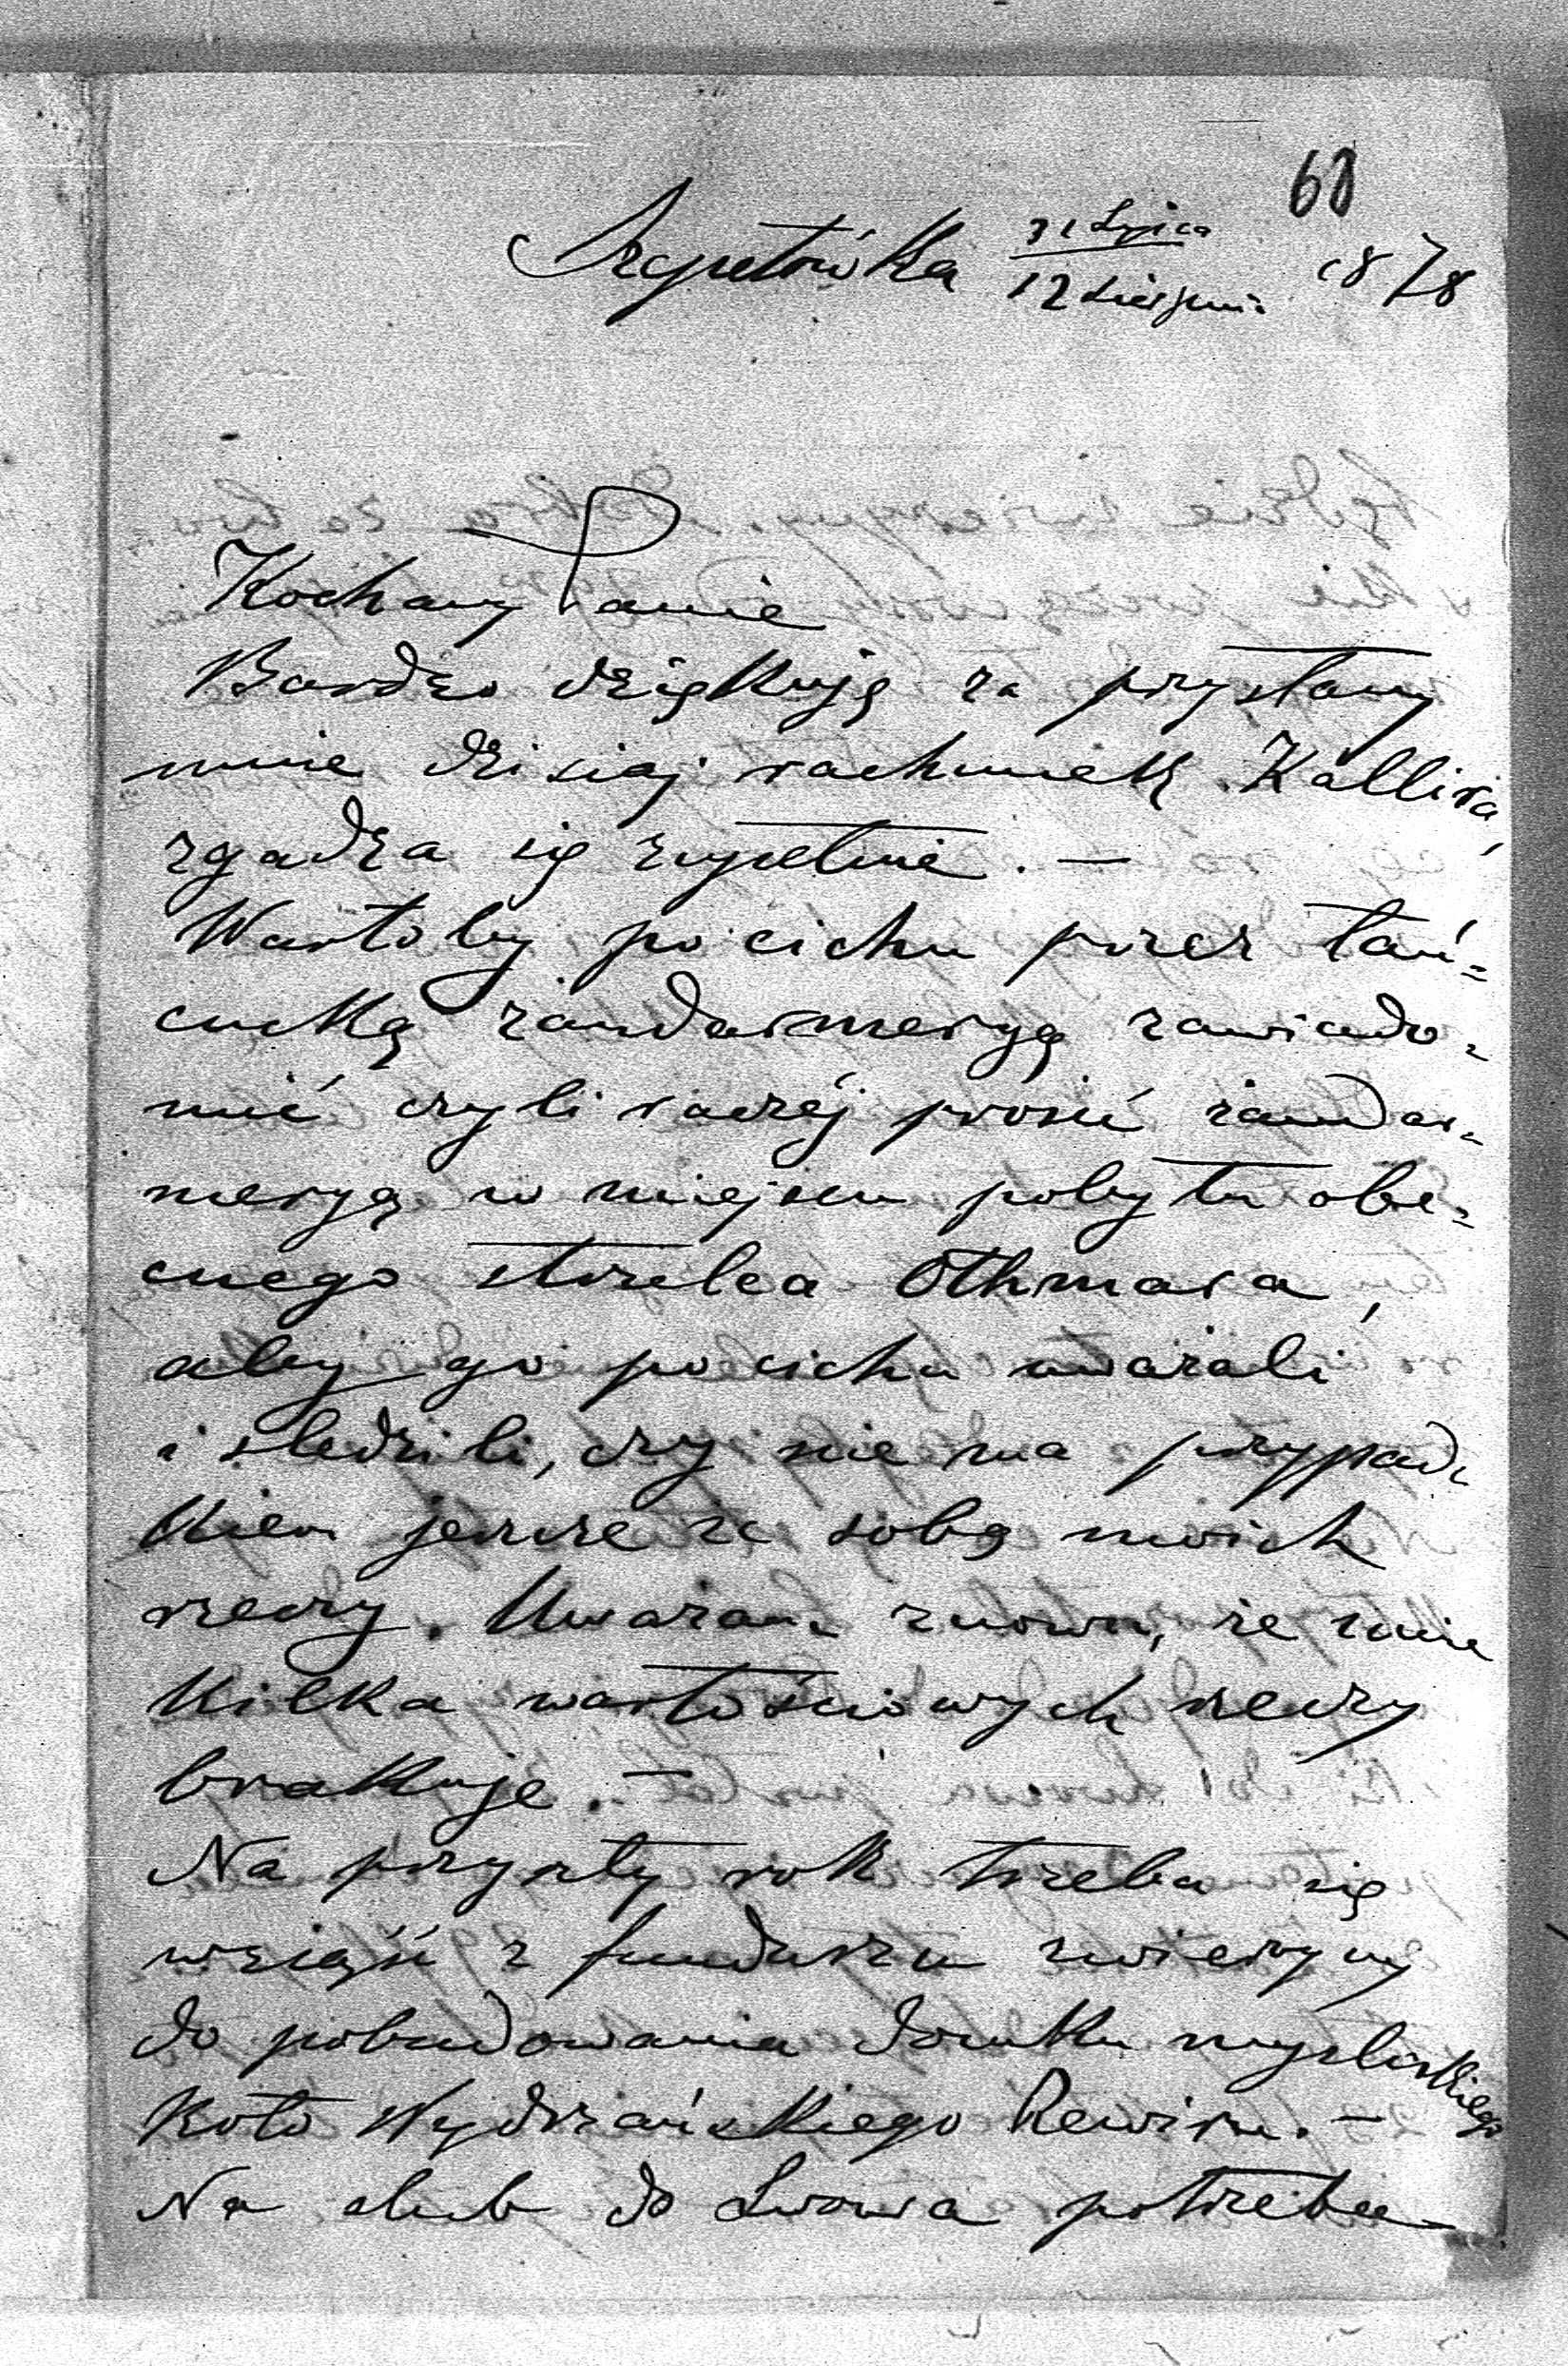 68
Szepetówka 31 Lipca / 12 Sierpnia 1878
Kochany Panie
Bardzo dziękuję za przysłany
mnie dzisiaj rachunek Kallira,
zgadza się zupełnie. —
Wartoby po cichu przez łań=
cucką żandarmeryą zawiado=
mić czyli raczéj prosić żandar=
meryą w miejscu pobytu obe=
cnego strzelca Othmara,
aby go po cichu uważali
i śledzili, czy nie ma przypad=
kiem jeszcze ze sobą moich
rzeczy. Uważam znowu, że mnie
kilka wartościowych rzeczy
brakuje. —
Na przyszły rok trzeba się
wziąść z funduszu zwierzyny
do pobudowania domku myśliwskiego
koło Wydrzańskiego Rewiru. —
Na ślub do Lwowa potrzebu=